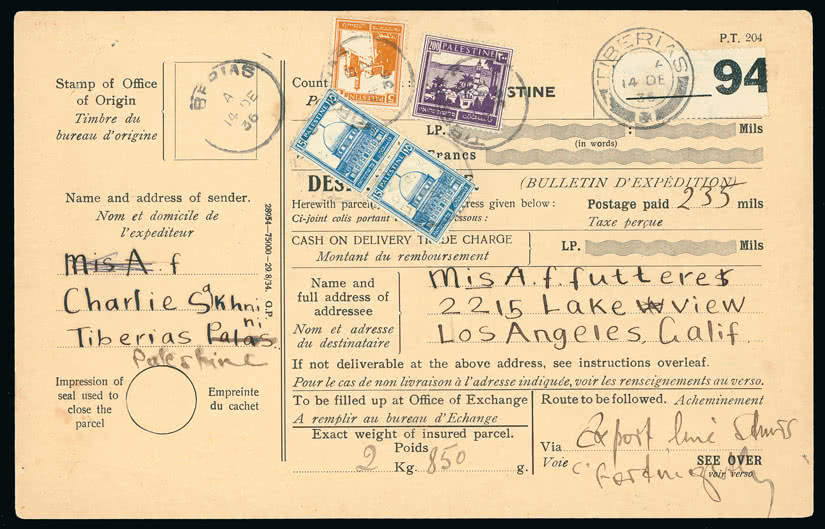 P.T. 204
Stamp of Office
of Origin
Timbre du
bureau d'origine
BERIAS
A
14 DE
36
Count
5
PALESTINE
200
PALESTINE
٢٠٠
15
PALESTINE
١٥
15
PALESTINE
١٥
STINE
TIBERIAS
14 DE
36
94
LP.
Mils
(in words)
Francs
DES
(BULLETIN D'EXPÉDITION)
Herewith parcel
gress given below :
Postage paid 235 mils
Ci-joint colis portant
ssous :
Taxe perçue
CASH ON DELIVERY TRADE CHARGE
Montant du remboursement
LP.
Mils
Name and address of sender.
Nom et domicile de
l'expediteur
Mis A. f
Charlie Sakhni
ni
Tiberias Palas
Palestine
28954—75000—29/8/34. G.P.
Name and
full address of
addressee
Nom et adresse
du destinataire
Mis A. f. futterer
2215 Lake view
Los Angeles, Calif
If not deliverable at the above address, see instructions overleaf.
Pour le cas de non livraison à l'adresse indiquée, voir les renseignements au verso.
Impression of
seal used to
close the
parcel
Empreinte
du cachet
To be filled up at Office of Exchange
A remplir au bureau d'Echange
Exact weight of insured parcel.
Poids
2 Kg. 850 g.
Route to be followed. Acheminement
Via
Voie
Export line
SEE OVER
voir verso